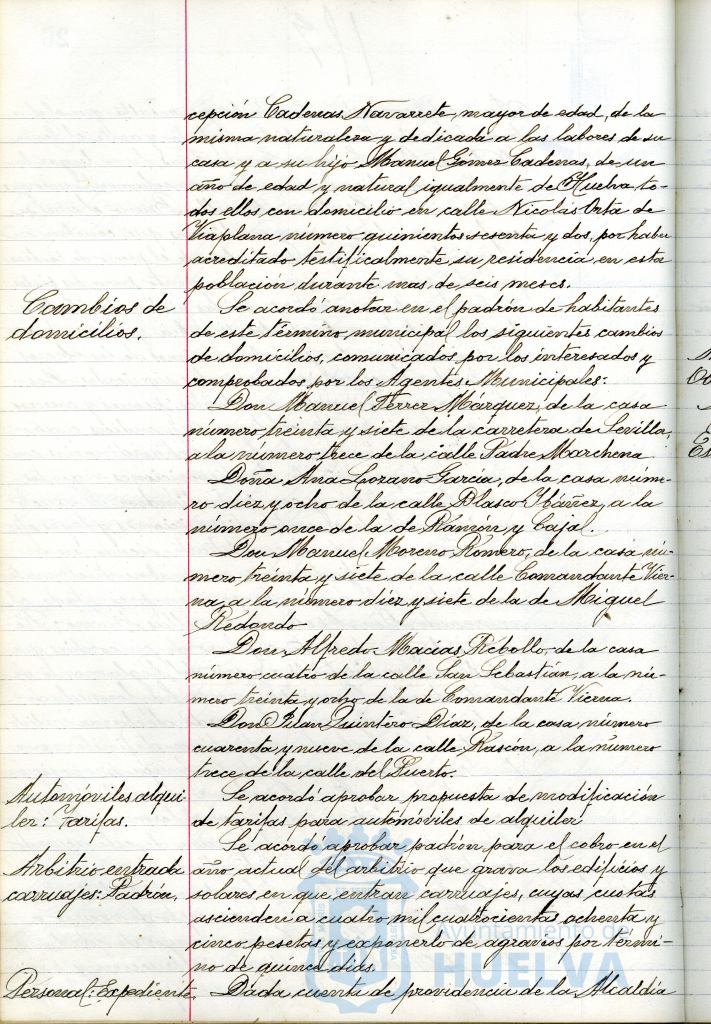 cepción Cadenas Navarrete, mayor de edad, de la
misma naturaleza y dedicada a las labores de su
casa y a su hijo Manuel Gómez Cadenas, de un
año de edad y natural igualmente de Huelva to-
dos ellos con domicilio en calle Nicolás Orta de
Viaplana número quinientos sesenta y dos, por haber
acreditado testificalmente su residencia en esta
población durante mas de seis meses.
Cambios de
domicilios.
Se acordó anotar en el padrón de habitantes
de este término municipal los siguientes cambios
de domicilios, comunicados por los interesados y
comprobados por los Agentes Municipales:
Don Manuel Ferrer Márquez, de la casa
número treinta y siete de la carretera de Sevilla,
a la número trece de la calle Padre Marchena
Doña Ana Lozano García, de la casa núme-
ro diez y ocho de la calle Blasco Ibáñez, a la
número once de la de Ramón y Cajal.
Don Manuel Moreno Romero, de la casa nú-
mero treinta y siete de la calle Comandante Vier-
na, a la número diez y siete de la de Miguel
Redondo
Don Alfredo Macías Rebollo, de la casa
número cuatro de la calle San Sebastián, a la nú-
mero treinta y ocho de la de Comandante Vierna.
Don Quintero Díaz, de la casa número
cuarenta y nueve de la calle Rascón, a la número
trece de la calle del Puerto.
Automóviles alqui-
ler: Tarifas.
Se acordó aprobar propuesta de modificación
de tarifas para automóviles de alquiler
Arbitrio entrada
carruajes: Padrón.
Se acordó aprobar padrón para el cobro en el
año actual del arbitrio que grava los edificios y
solares en que entran carruajes, cuyas cuotas
ascienden a cuatro mil cuatrocientas ochenta y
cinco pesetas y exponerlo de agravios por térmi-
no de quince días.
Personal: Expediente.
Dada cuenta de providencia de la Alcaldía
Ayuntamiento de
HUELVA